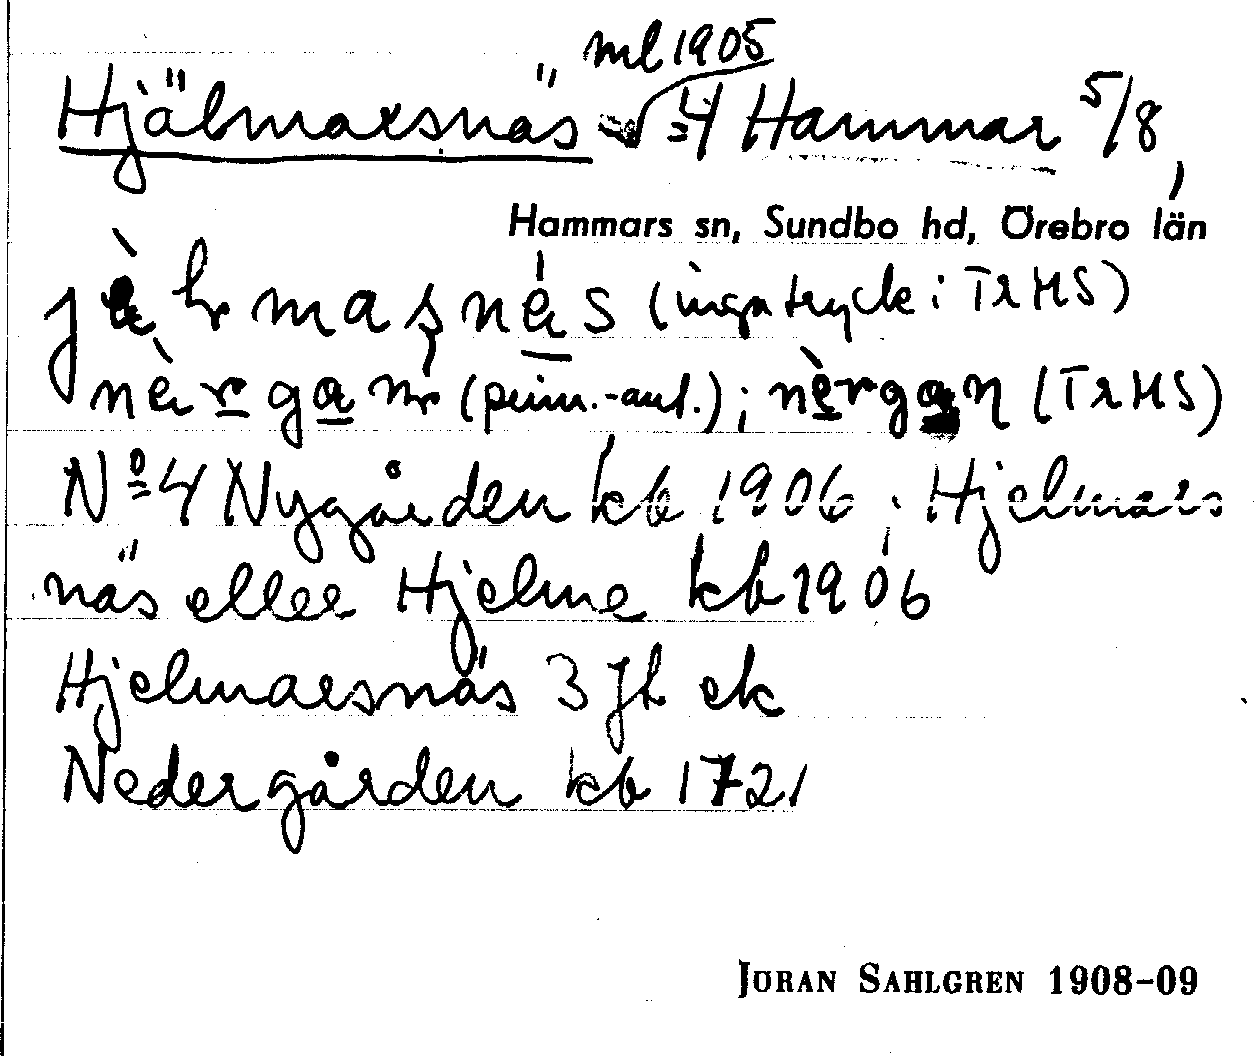 ml 1905
Hjälmarsnäs 4 Hammar 5/8,
Hammars sn, Sundbo hd, Örebro län
(inga tryck i TrHS)
(prim.-aut.); nèrgan (TrHS)
Nº 4 Nygården kb 1906, Hjelmars
näs eller Hjelme kb 1906
Hjelmarsnäs 3 JL ek
Nedergården kb 1721
JÖRAN SAHLGREN 1908-09